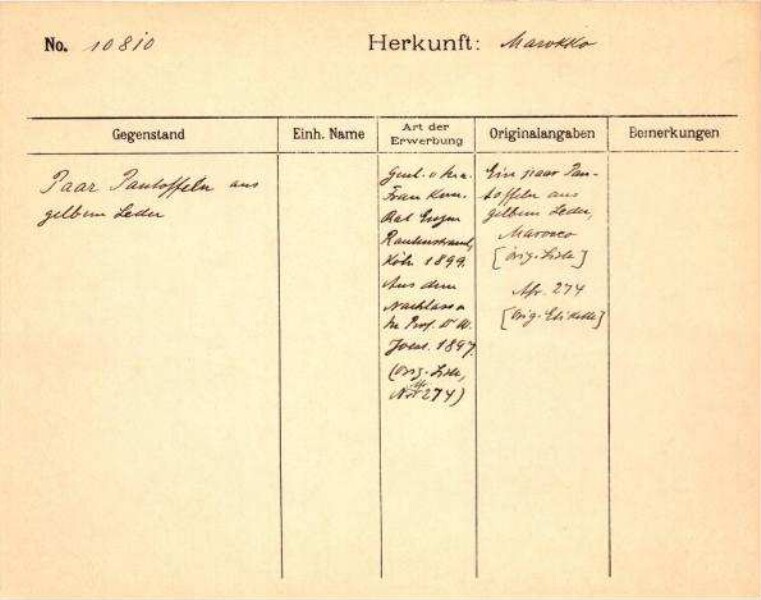 No. 10810
Herkunft: Marokko
Gegenstand
Einh. Name
Art der
Erwerbung
Originalangaben
Bemerkungen
Paar Pantoffeln aus
gelbem Leder
Frau Kom.
Rat Eugen
Rautenstrauch,
Köln 1899.
Aus dem
Nachlass
Prof. Dr. W.
Joest. 1897.
(Orig. Liste,
Afr.
No 274)
Ein paar Pan-
toffeln aus
gelbem Leder,
Marocco
[Orig. Liste]
Afr. 274
[Orig. Etikette]